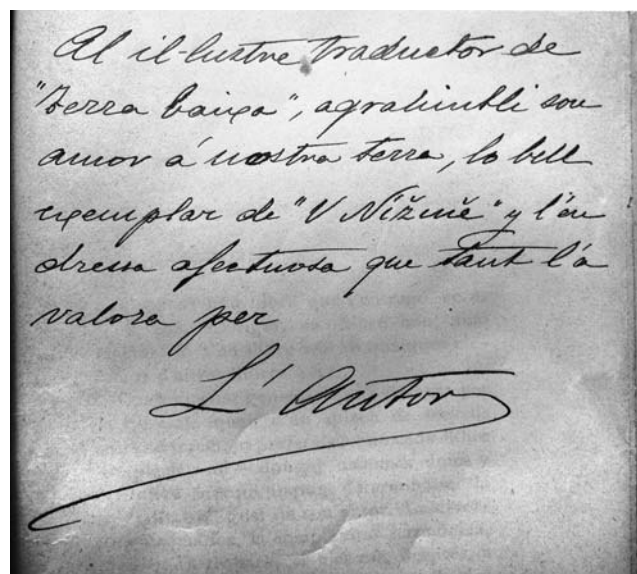 Al il-lustre traductor de
"Terra baixa", agrahintli son
amor á nostra terra, lo bell
exemplar de "V Nížině" y l'en
dressa afectuosa que tant l'a
valora per
L'Autor